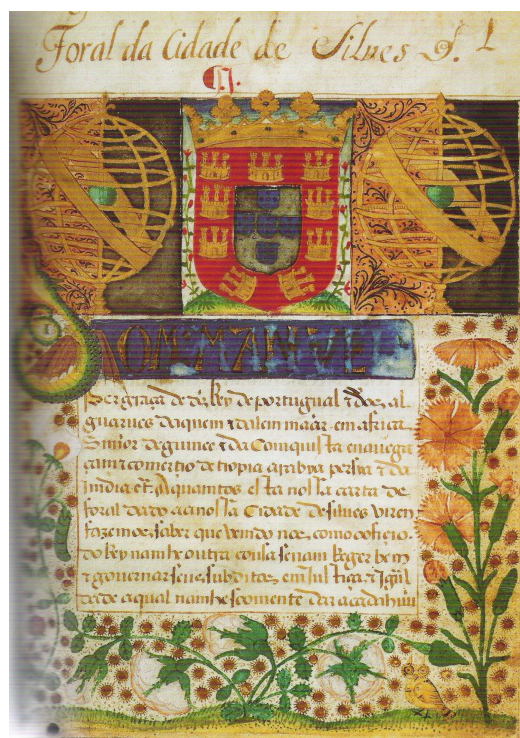 Foral da Cidade de Silves
DOM MANVEL
Per graça de ds Rey de portugual & dos al
guarues daquem & dalem maar em africa
Snnor de guinee & da Comquista enauega
çam & comerçio de tiopia arabya persya & da
Jndia etc A quamtos esta nossa carta de
foral dado aa nossa Cidade de silues viren
fazemos saber que vemdo nos como o ofiçio
do Rey nam he outra cousa senam Reger bem
& gouernar seus subditos em Justiça & Jgual
dade a qual nam he somente dar a cada huu